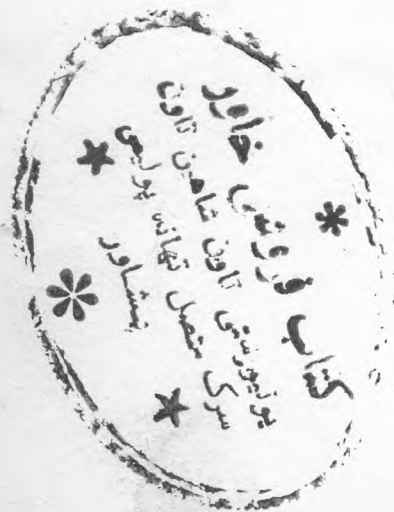 کتاب فروشی خاور
یونیورستی تاون شاهین تاون
سرک متصل تهانه پولیس
پشاور